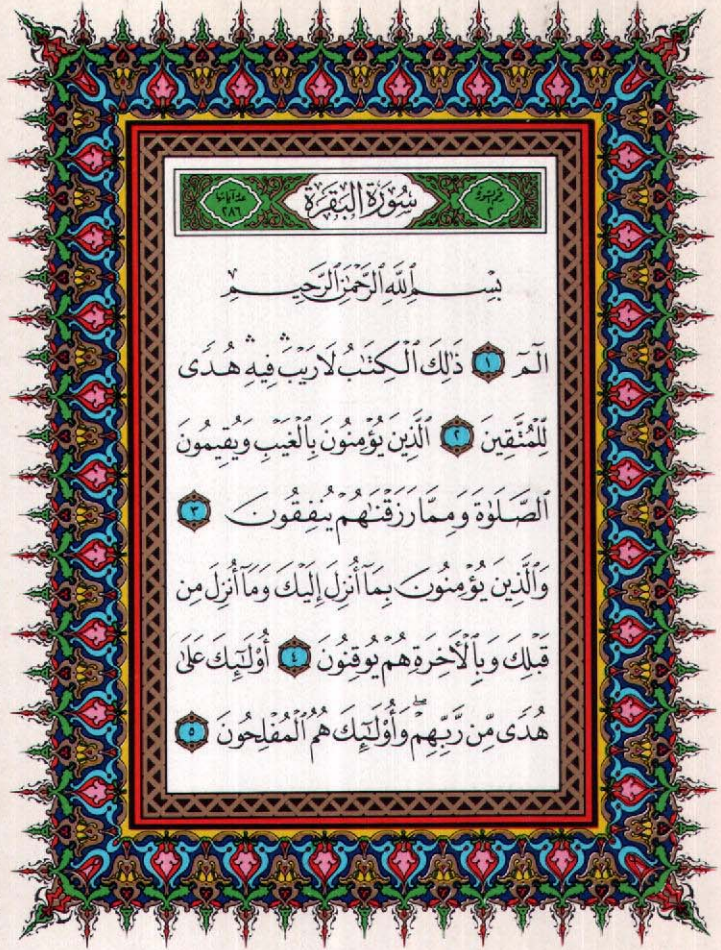 رقم السورة ٢
سُورَةُ البَقَرَةِ
عدد آياتها ٢٨٦
بِسْمِ ٱللَّهِ ٱلرَّحْمَٰنِ ٱلرَّحِيمِ
الٓمٓ ١ ذَٰلِكَ ٱلْكِتَٰبُ لَا رَيْبَ ۛ فِيهِ ۛ هُدًى
لِّلْمُتَّقِينَ ٢ ٱلَّذِينَ يُؤْمِنُونَ بِٱلْغَيْبِ وَيُقِيمُونَ
ٱلصَّلَوٰةَ وَمِمَّا رَزَقْنَٰهُمْ يُنفِقُونَ ٣
وَٱلَّذِينَ يُؤْمِنُونَ بِمَآ أُنزِلَ إِلَيْكَ وَمَآ أُنزِلَ مِن
قَبْلِكَ وَبِٱلْأٓخِرَةِ هُمْ يُوقِنُونَ ٤ أُو۟لَٰٓئِكَ عَلَىٰ
هُدًى مِّن رَّبِّهِمْ ۖ وَأُو۟لَٰٓئِكَ هُمُ ٱلْمُفْلِحُونَ ٥